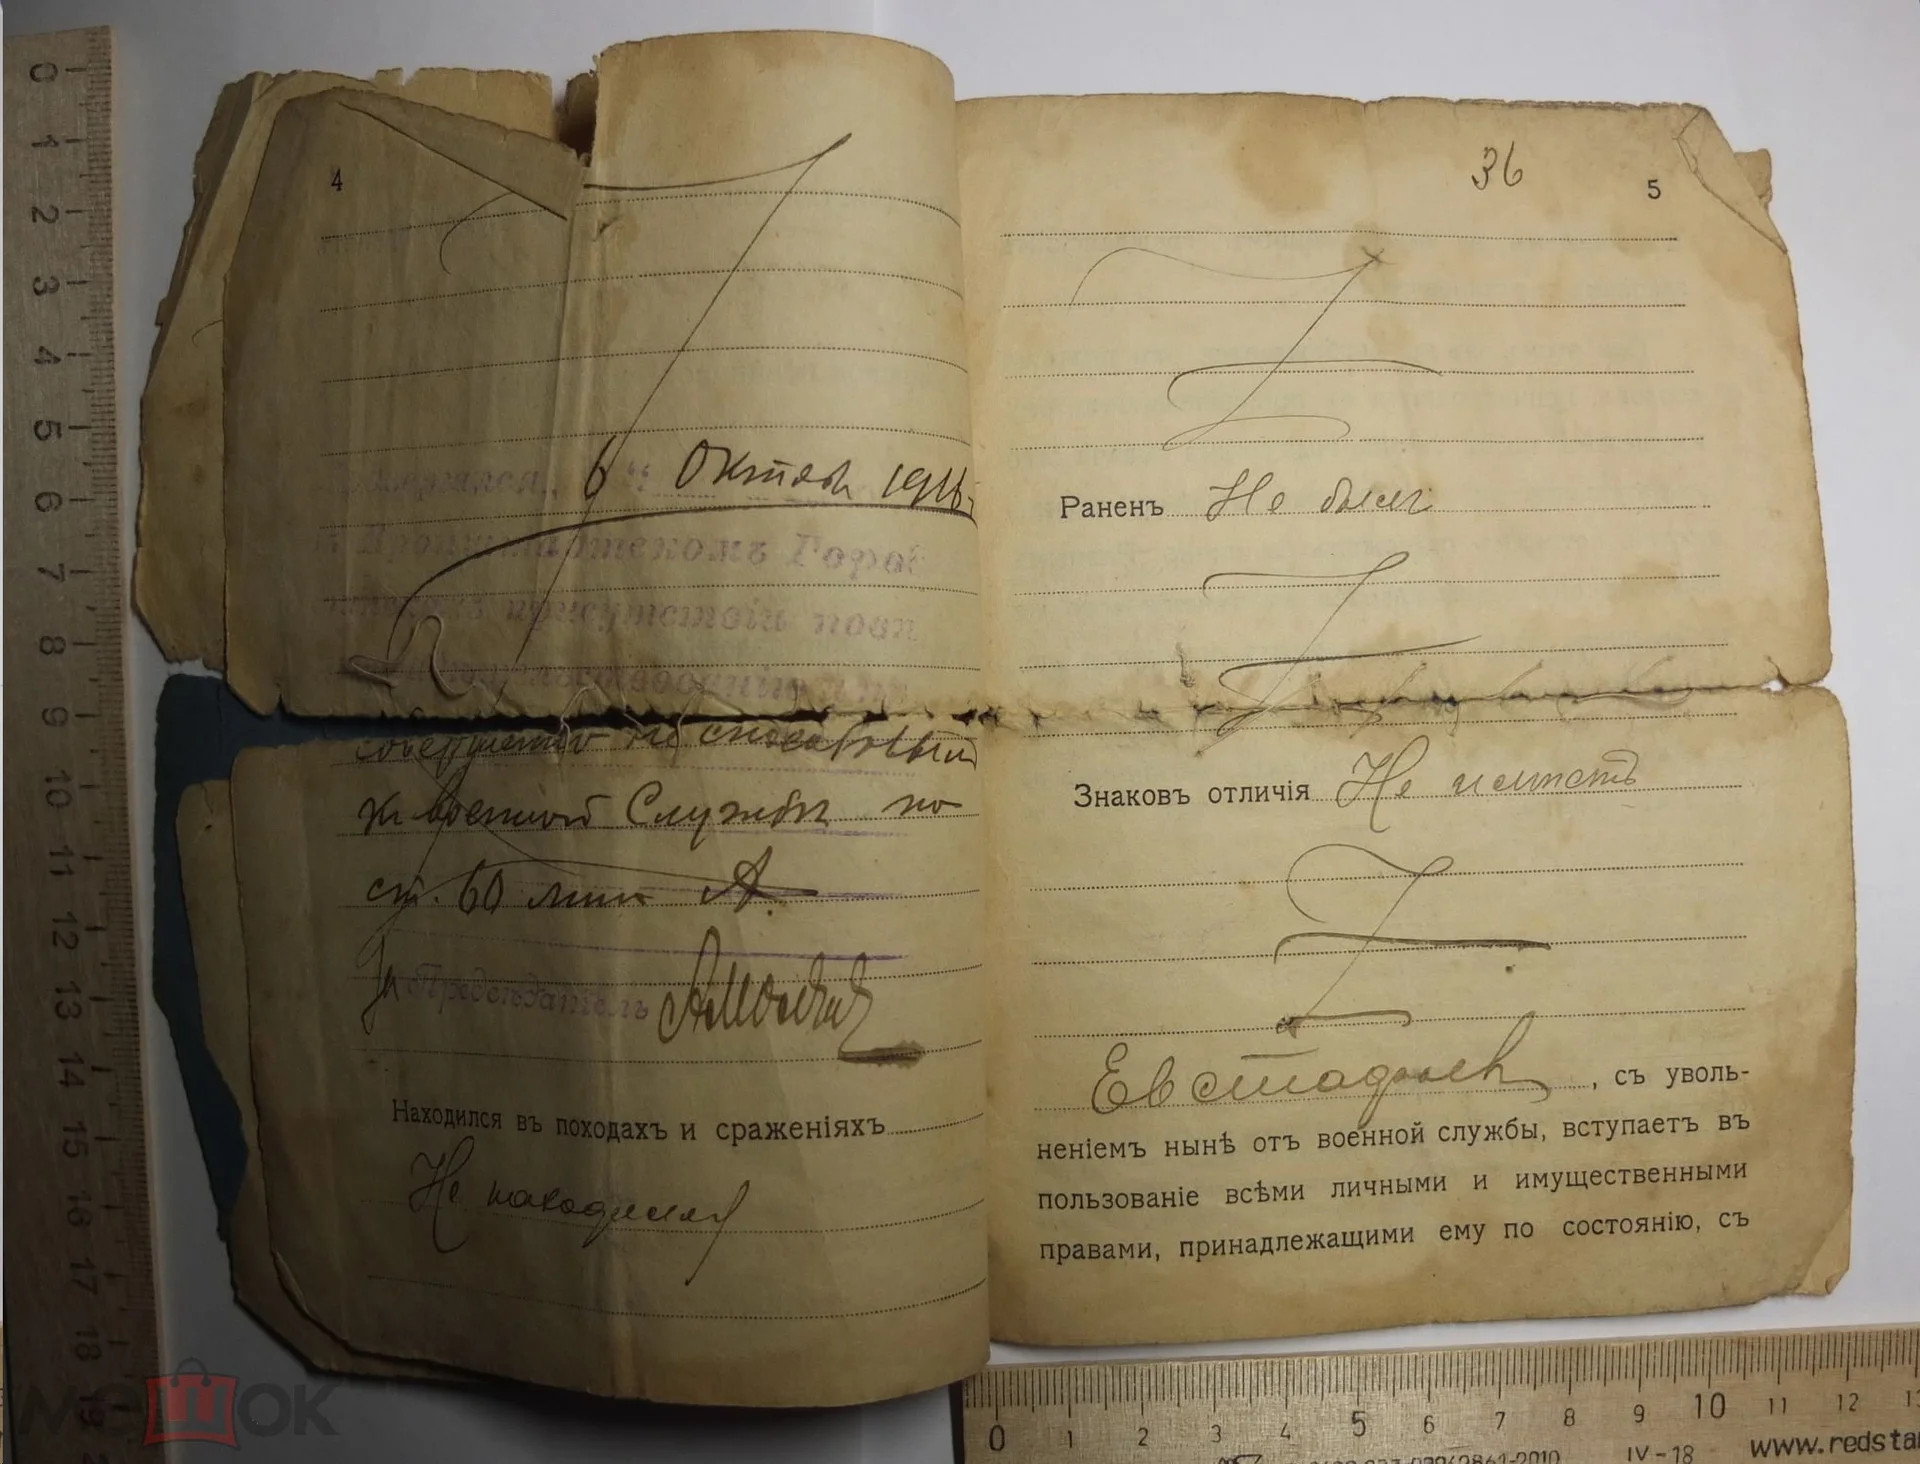 4
6 " Октяб 1916 г
Кронштадтскомъ Город
присутствіи
совершенно не способный
къ военной Службѣ по
ст. 60 лит А.
За Предсѣдатель
Находился въ походахъ и сраженіяхъ
Не находился
36
5
Раненъ Не былъ
Знаковъ отличія Не имѣетъ
Евстафьевъ, съ уволь-
неніемъ нынѣ отъ военной службы, вступаетъ въ
пользованіе всѣми личными и имущественными
правами, принадлежащими ему по состоянію, съ
0 1 2 3 4 5 6 7 8 9 10 11 12 13 14 15 16 17 18 19 2
0 1 2 3 4 5 6 7 8 9 10 11 12 13
IV-18
www.redsta
мешок